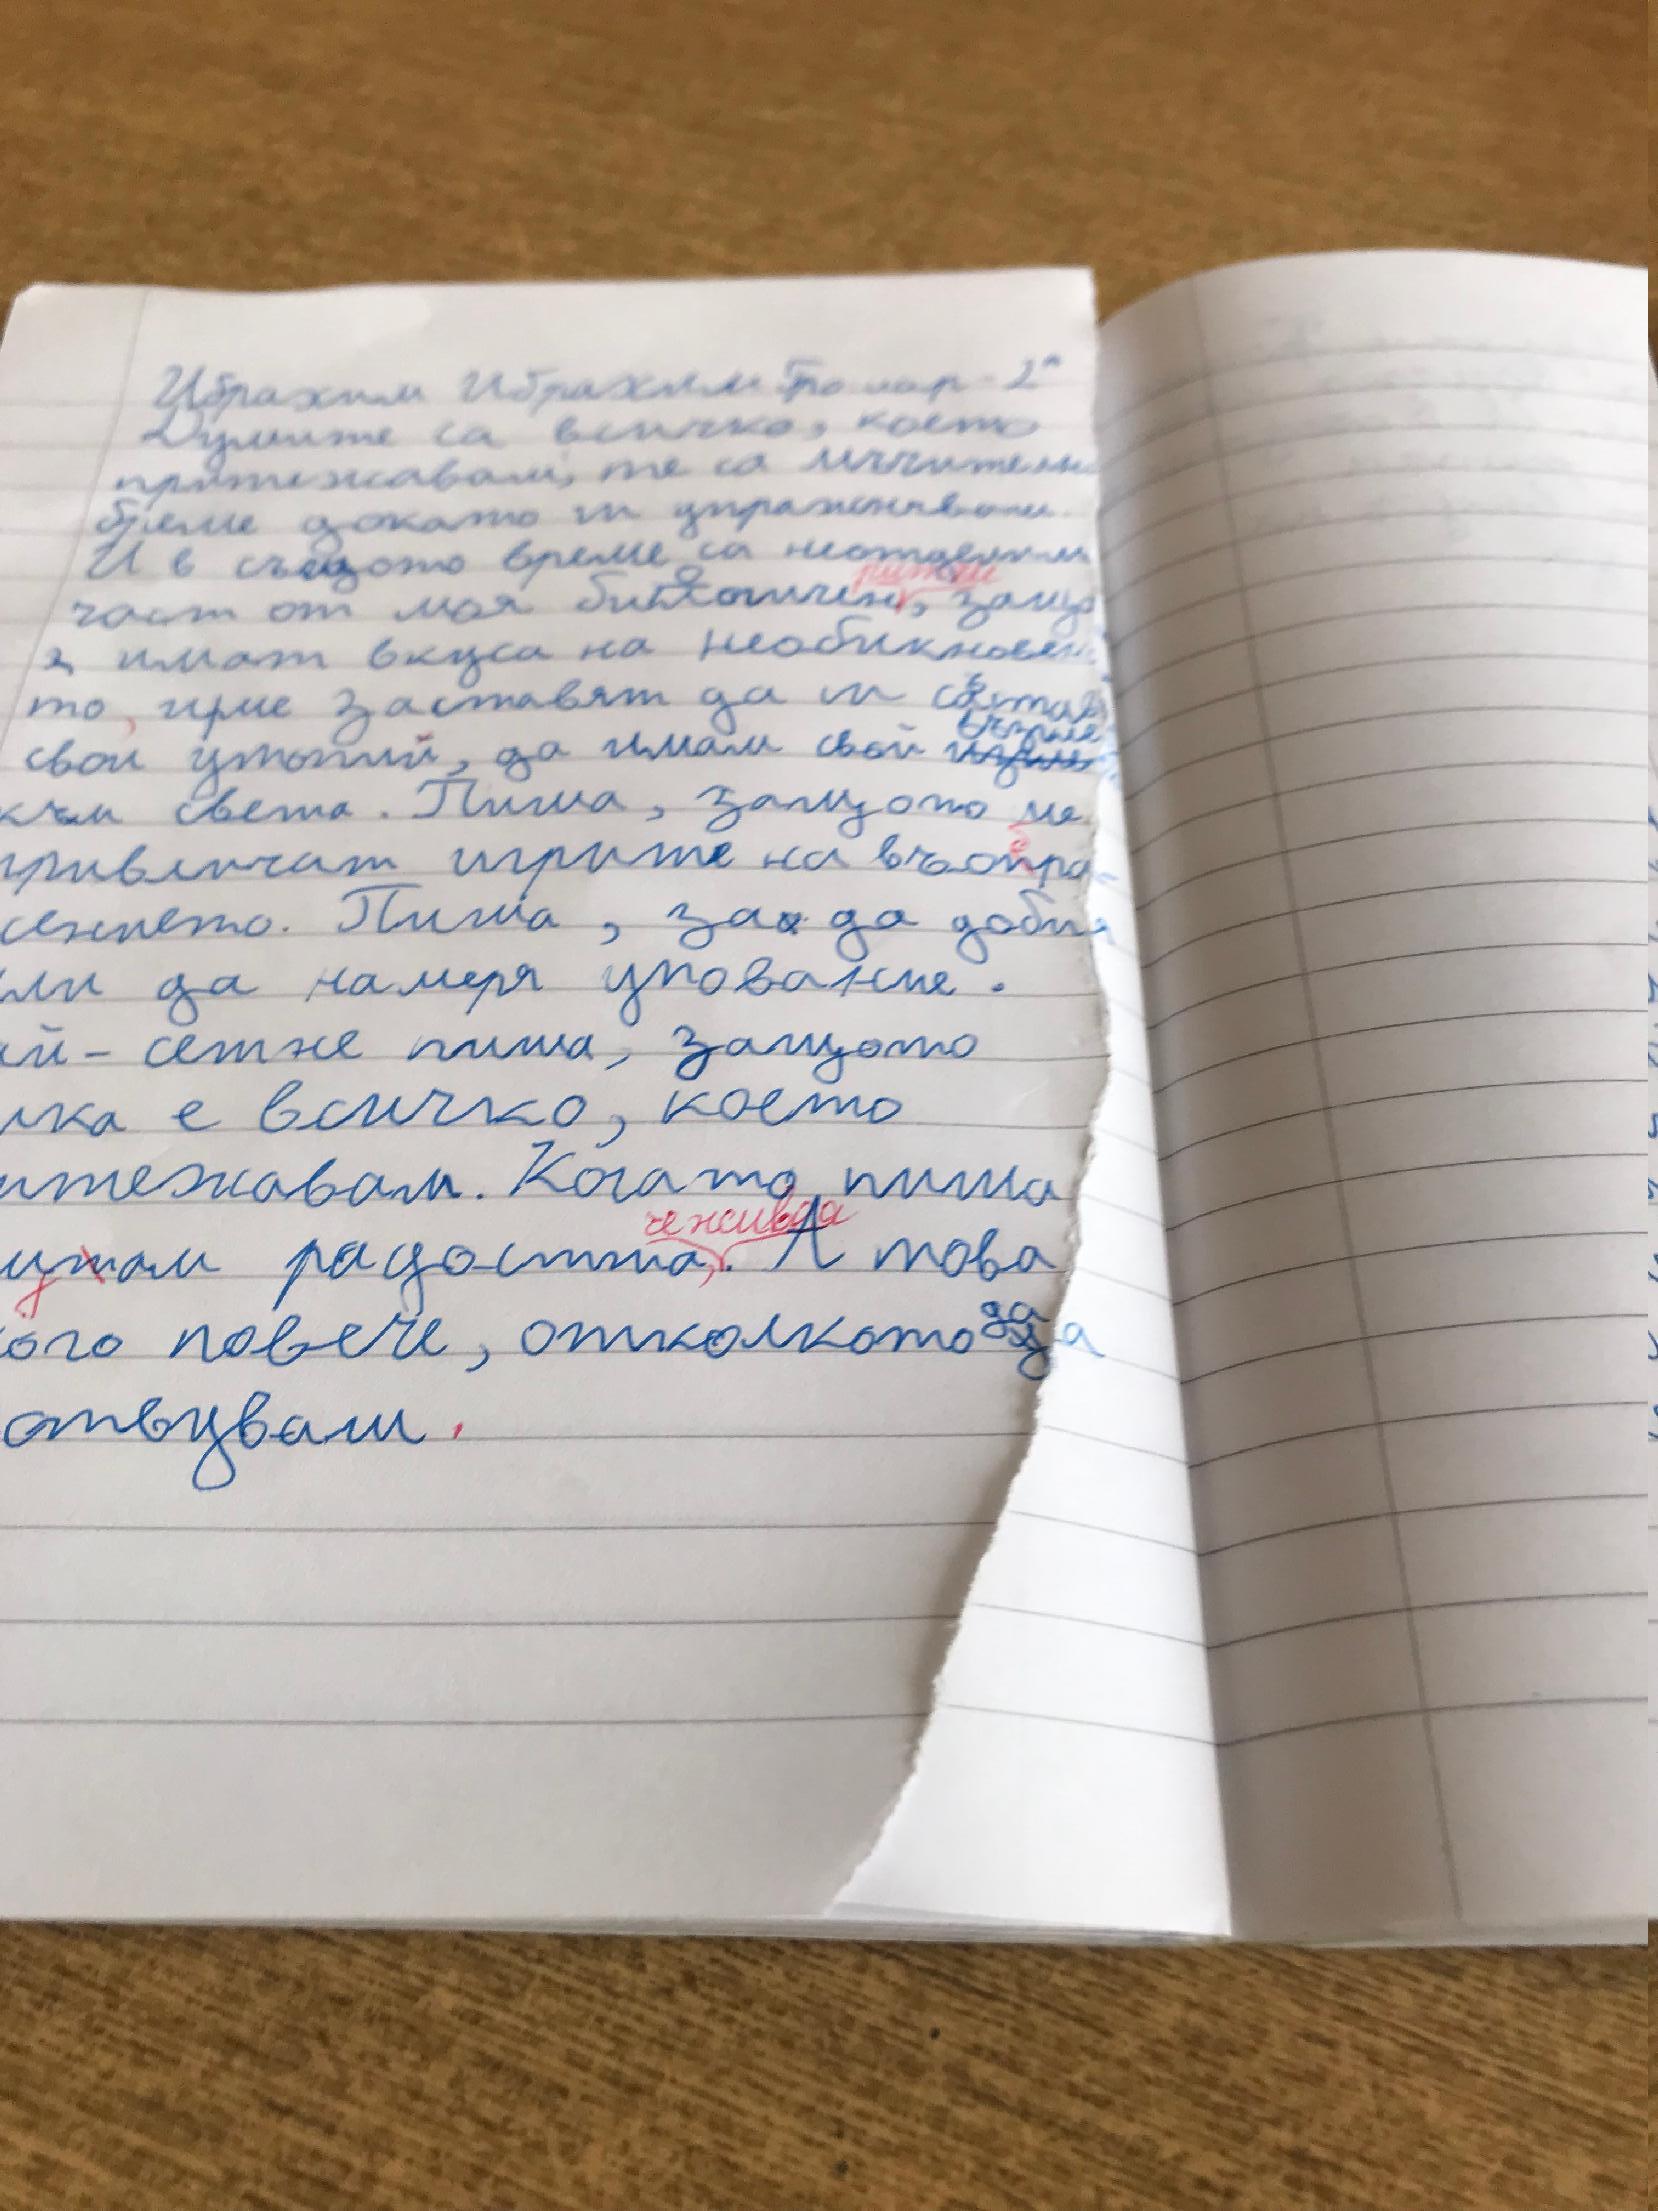 Ибрахим Ибрахим
Думите са всичко, което
притежавам, те са мъчително
бреме докато ги упражнявам.
И в същото време са неотделим
част от моя защо
имат вкуса на необикновен
то, ме заставят да си
свои утопии, да имам свой
към света. Пиша, защото ме
привличат игрите на въобра-
жението. Пиша, за да добия
или да намеря упование.
ай-сетне пиша, защото
лка е всичко, което
итежавам. Когато пиша
радостта, че живея. А това
ого повече, отколкото да
отвувам.